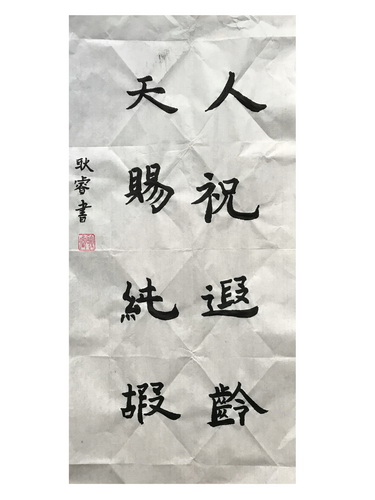 人祝遐齡
天賜純嘏
耿睿書